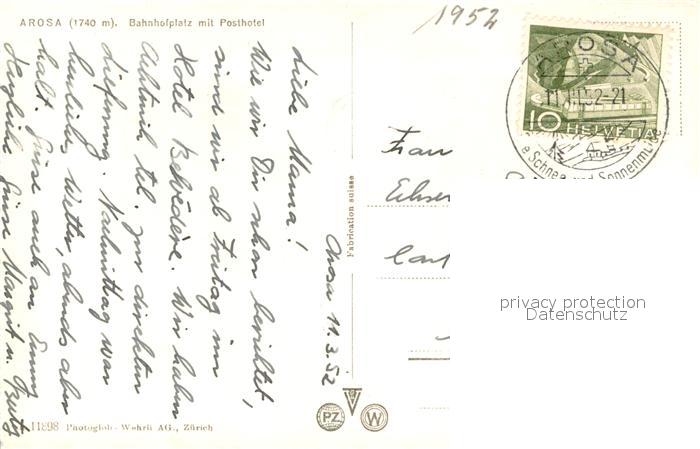 AROSA (1740 m). Bahnhofplatz mit Posthotel
1952
AROSA
11.III.52-21
Schnee und Sonnen
10 HELVETIA
Arosa 11.3.52
Liebe Mama!
Wie wir Dir schon berichtet,
sind wir ab Freitag im
Hotel Belvédère. Wir haben
tel. zur direkten
Lieferung. Nachmittag war
herrliches Wetter, abends aber
kalt. Grüsse auch an
Herzliche Grüsse Margrit u. Fritz
Frau
Fabrication suisse
privacy protection
Datenschutz
PZ
W
11898 Photoglob-Wehrli AG., Zürich